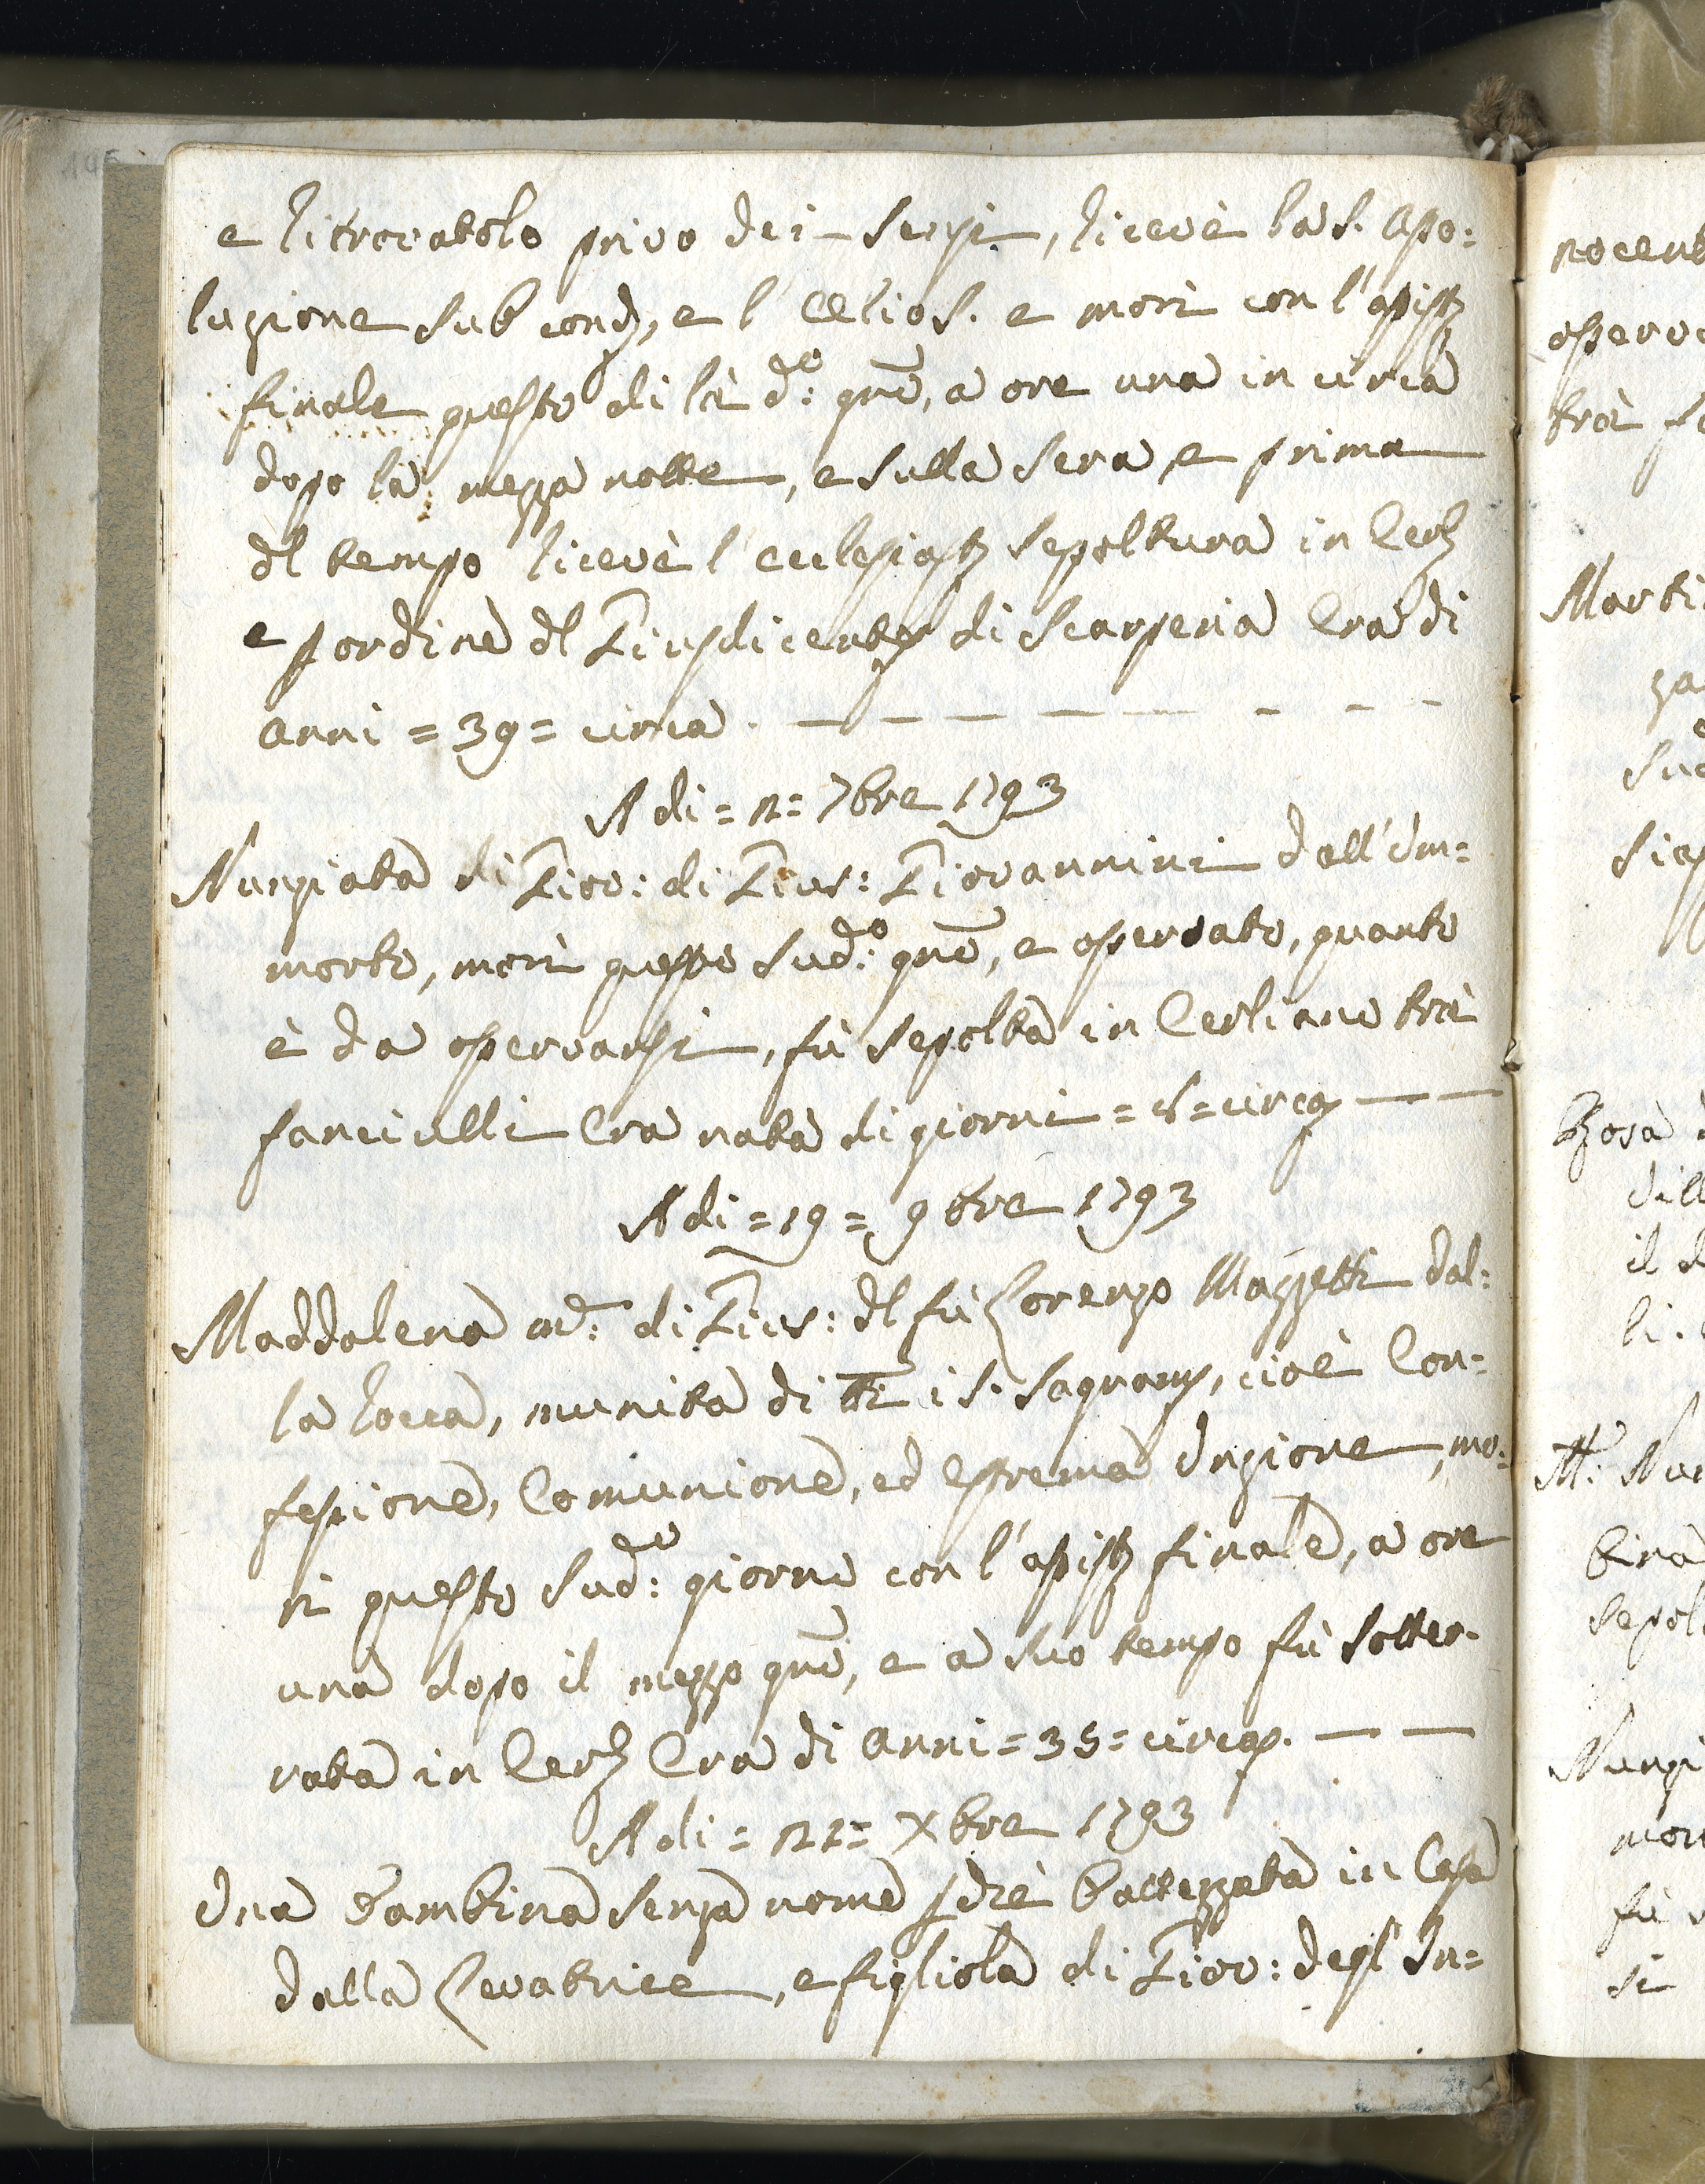 e ritrovatolo privo dei sensi, ricevè la S. Asso:
luzione sub cond., e l'Olio S. e morì con l'assist.
finale questo di là d.o gno, a ore una in circa
dopo la mezza notte, e sulla sera, e prima
dl tempo ricevè l'ecclesiast. sepoltura in Cerl.
e p ordine dl Giusdicente di Scarperia Era di
anni = 39 = circa. — — — — — — — —
A di = 12 = 7bre 1793
Nunziata di Giov: di Gius: Giovannini dall'Im=
morto, morì questo sud.o gno, e osservato, quanto
è da osservarsi, fù sepolta in Cerliano trà
fanciulli Era nata di giorni = 8 = circa — —
A di = 19 = 9bre 1793
Maddalena m: di Gius: dl fù Lorenzo Mazzetti dal:
la Rocca, munita di tti i S. Sagram, cioè Con=
fessione, Comunione, ed estrema Unzione, mo:
rì questo sud.o giorno con l'assist. finale, a ore
una dopo il mezzo gno, e a suo tempo fù sotter.
rata in Cerl. Era di anni = 35 = circa. — —
A di = 22 = Xbre 1793
Una Bambina senza nome pchè battezzata in Casa
dalla Levatrice, e figliola di Giov: degl'In=